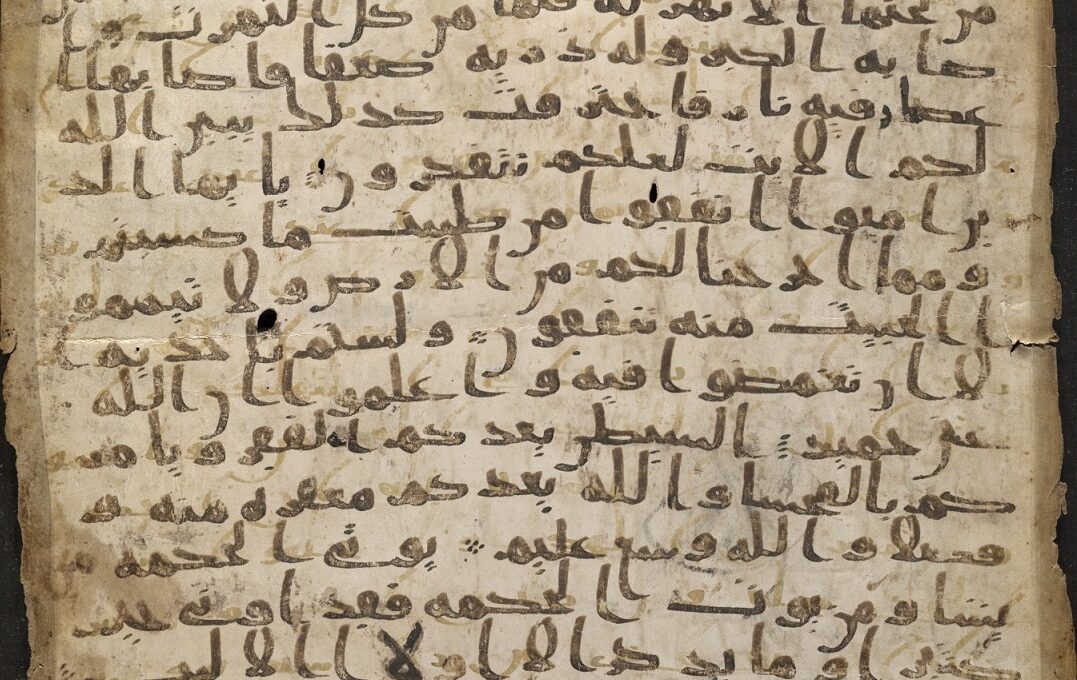 من تحتها الانهر له فيها من كل الثمرت و ا
صابه الكبر وله ذريه ضعفا فاصابها ا
عصار فيه نار فاحترقت كذلك يبين الله
لكم الايت لعلكم تتفكرون يايها الذ
ين امنوا انفقوا من طيبت ما كسبتم
ومما اخرجنا لكم من الارض ولا تيممو
ا الخبيث منه تنفقون ولستم باخذيه ا
لا ان تغمضوا فيه و اعلموا ان الله
غني حميد الشيطن يعدكم الفقر ويامر
كم بالفحشا والله يعدكم مغفره منه و
فضلا والله وسع عليم يوتي الحكمه
يشا ومن يوت الحكمه فقد اوتي خير
كثيرا وما يذكر الا